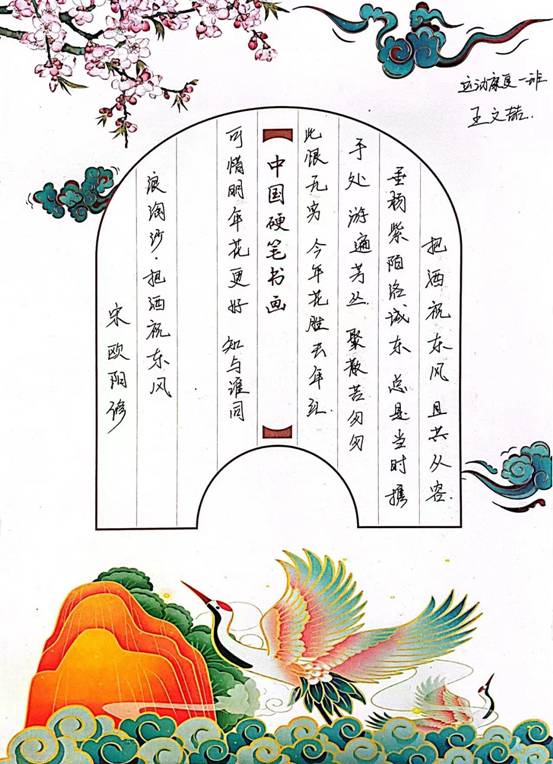 运动康复一班
王文喆.
把酒祝东风 且共从容.
垂杨紫陌洛城东 总是当时携
手处 游遍芳丛. 聚散苦匆匆
此恨无穷 今年花胜去年红.
中国硬笔书画
可惜明年花更好 知与谁同
浪淘沙·把酒祝东风
宋 欧阳修